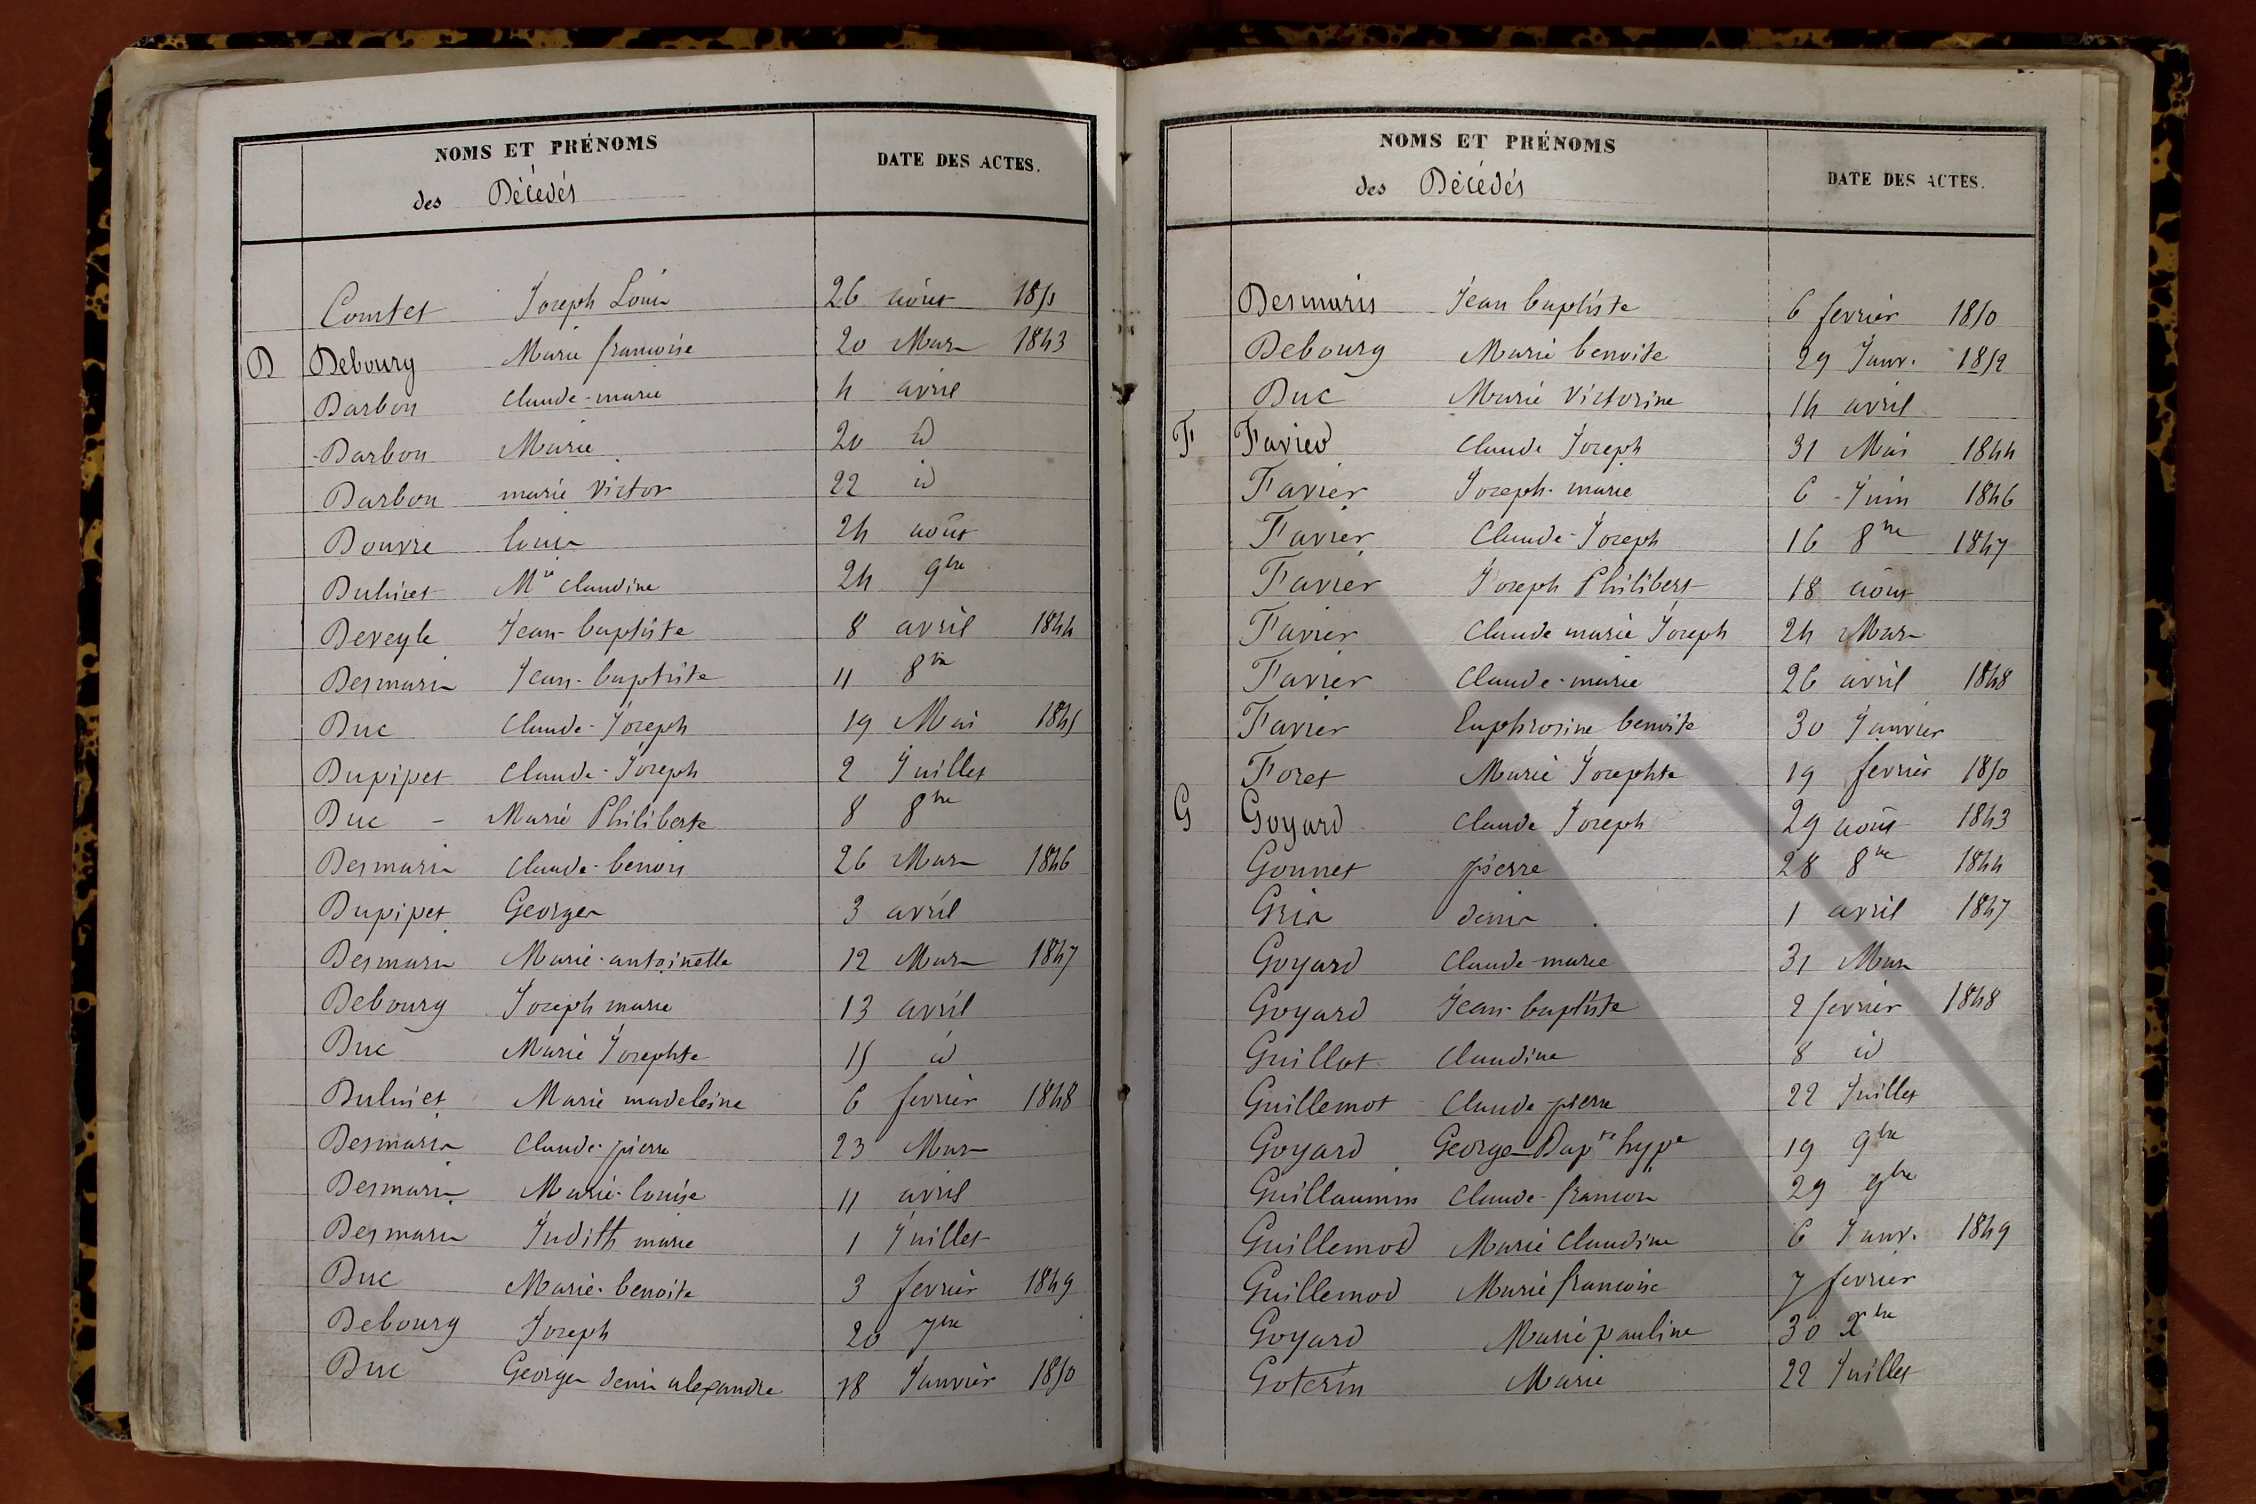 NOMS ET PRÉNOMS
des Décédés
DATE DES ACTES.
Comtet Joseph Louis 26 août 1851
D Debourg Marie françoise 20 Mars 1843
Darbon Claude-marie 4 avril
Darbon Marie 20 id
Darbon marie Victor 22 id
Douvre louis 24 août
Duhiet Mie Claudine 24 9bre
Deveyle Jean-baptiste 8 avril 1844
Desmaris Jean-baptiste 11 8bre
Duc Claude-Joseph 19 Mai 1845
Dupipet Claude-Joseph 2 Juillet
Duc - Marie Philiberte 8 8bre
Desmaris Claude-benois 26 Mars 1846
Dupipet Georges 3 avril
Desmaris Marie-antoinette 12 Mars 1847
Debourg Joseph marie 13 avril
Duc Marie Josephte 15 id
Duhiet Marie madeleine 6 fevrier 1848
Desmaris Claude-pierre 23 Mars
Desmaris Marie-louise 11 avril
Desmaris Judith marie 1 Juillet
Duc Marie-benoite 3 fevrier 1849
Debourg Joseph 20 7bre
Duc Georges denis alexandre 18 Janvier 1850
NOMS ET PRÉNOMS
des Décédés
DATE DES ACTES.
Desmaris Jean baptiste 6 fevrier 1850
Debourg Marie benoite 29 Janv. 1852
Duc Marie Victorine 14 avril
F Favier Claude Joseph 31 Mai 1844
Favier Joseph-marie 6 Juin 1846
Favier Claude-Joseph 16 8bre 1847
Favier Joseph Philibert 18 août
Favier Claude marie Joseph 24 Mars
Favier Claude-marie 26 avril 1848
Favier Euphrosine benoite 30 Janvier
Foret Marie Josephte 19 fevrier 1850
G Goyard Claude Joseph 29 août 1843
Gonnet pierre 28 8bre 1844
Gris denis 1 avril 1847
Goyard Claude-marie 31 Mars
Goyard Jean-baptiste 2 fevrier 1848
Guillot Claudine 8 id
Guillemot Claude-pierre 22 Juillet
Goyard Georges Bapte hype 19 9bre
Guillaumin Claude-francois 29 9bre
Guillemod Marie Claudine 6 Janv. 1849
Guillemod Marie françoise 7 fevrier
Goyard Marie pauline 30 Xbre
Goterin Marie 22 Juillet